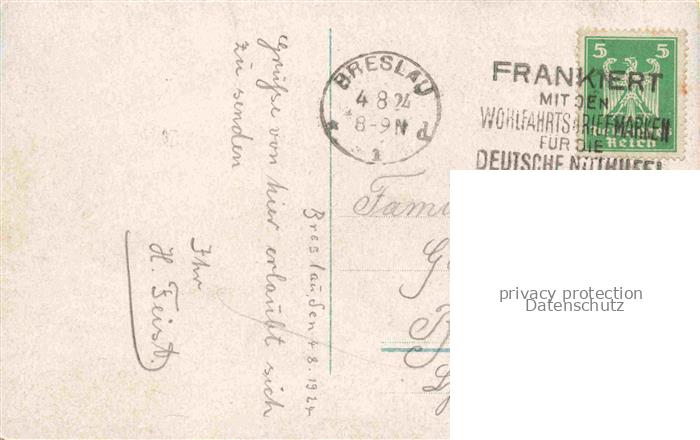 Breslau, den 4.8.1924
Grüße von hier erlaubt sich
zu senden
Ihr
H. Feist.
BRESLAU
4 8 24
8-9 N
1
FRANKIERT
MIT DEN
WOHLFAHRTSBRIEFMARKEN
FÜR DIE
DEUTSCHE NOTHILFE!
5 5
Reich
privacy protection
Datenschutz